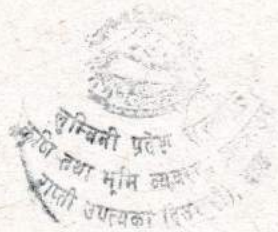 लुम्बिनी प्रदेश
कृषि तथा भूमि व्यवस्था
राप्ती उपत्यका (देउखुरी),